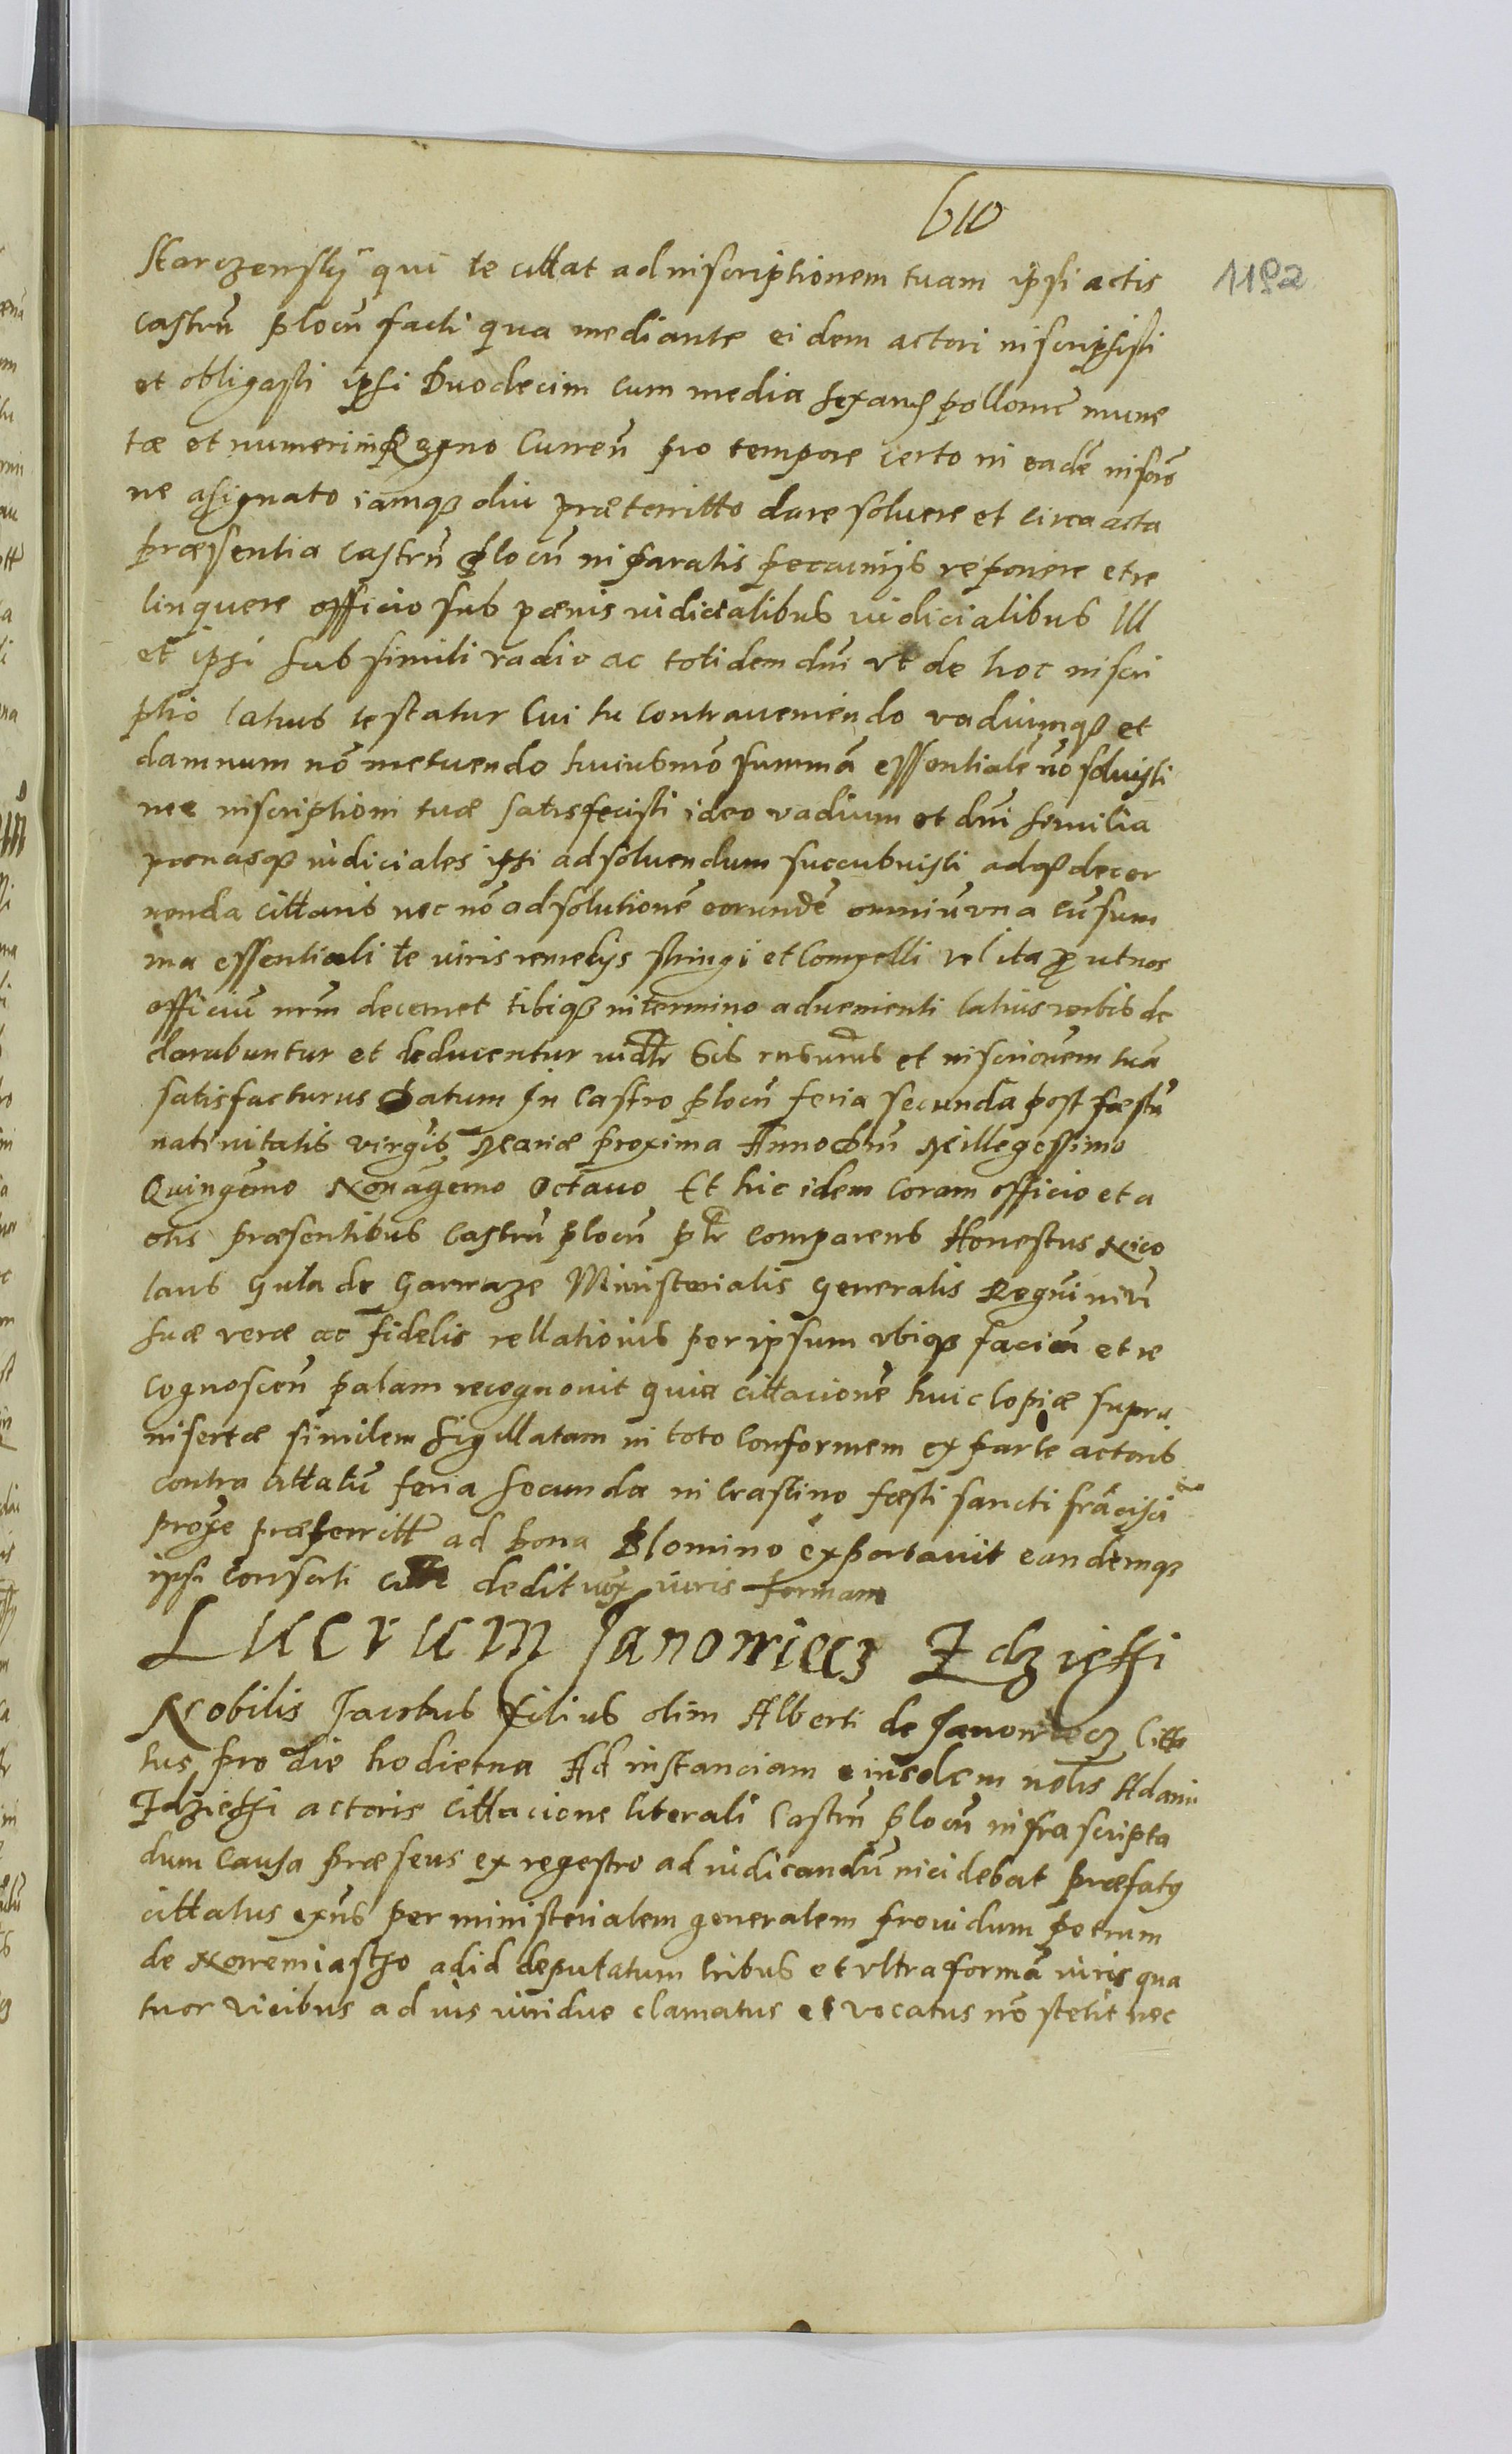 610
1192
Starczensky qui te cittat ad inscriptionem tuam ipsi actis
castrñ plocñ facti qua mediante eidem actori inscripsisti
et obligasti ipsi Duodecim cum media sexañ pollonie mune
tæ et numeri in Regno Curreñ pro tempore certo in eadē inscrõ
ne asignato iamq3 diu præterritto dare soluere et circa acta
præsentia castrñ plocñ in paratis pecunijs reponere et re
linquere officio sub pœnis iudicialibus iudicialibus III
et ipsi sub simili vadio ac totidem dñi ut de hoc inscri
ptio latius testatur Cui tu contraueniendo vadiumq3 et
damnum nõ metuendo huiusmõ summã essentialē nõ soluisti
nec inscriptioni tuæ satisfecisti ideo vadium et dñi similia
pœnasq3 iudiciales ipsi ad soluendum succubuisti adq3 decer
nenda cittaris nec nõ ad solutionē eorundē omniū vna cū sum
ma essentiali te iuris remedijs stringi et Compelli vel ita prout nos
officiū nrm̃ decernet tibiq3 in termino aduenienti latius verbis de
clarabuntur et deducentur et inscrionem tuã
satisfacturus Datum In Castro plocñ feria secunda post fæstū
natiuitatis virgĩs Mariæ proxima Anno dñi Millegessimo
Quingẽmo Nonagẽmo Octauo Et hic idem Coram officio et a
ctis præsentibus Castrñ plocñ pltr comparens Honestus Nico
laus Gula de Garwaze Ministerialis Generalis Regni
suæ veræ ac fidelis rellationis per ipsum vbiq3 facieñ et re
Cognosceñ palam recognouit quia cittacionē huic Copiæ supra
insertæ similem sigillatam in toto Conformem ex parte actoris
contra cittatū feria secunda in Crastino fæsti sancti frãcisci
proxe præterritt ad bona Slomino exportauit eandemq3
ipsi dedit iuxta iuris formam
Lucrum Janowiecz Idziessi
Nobilis Jacobus filius olim Alberti de Janowiecz Citta
tus pro die hodierna Ad instanciam eiusdem nobis Adami
Idziessi actoris Cittacione literali Castrñ plocñ infra scripta
dum Causa præsens ex regestro ad iudicandū incidebat præfatus
cittatus exñs per ministerialem generalem prouidum petrum
de Nowemiasto ad id deputatum tribus et vltra formã iuris qua
tuor vicibus ad ius viridue clamatus et vocatus nõ stetit nec